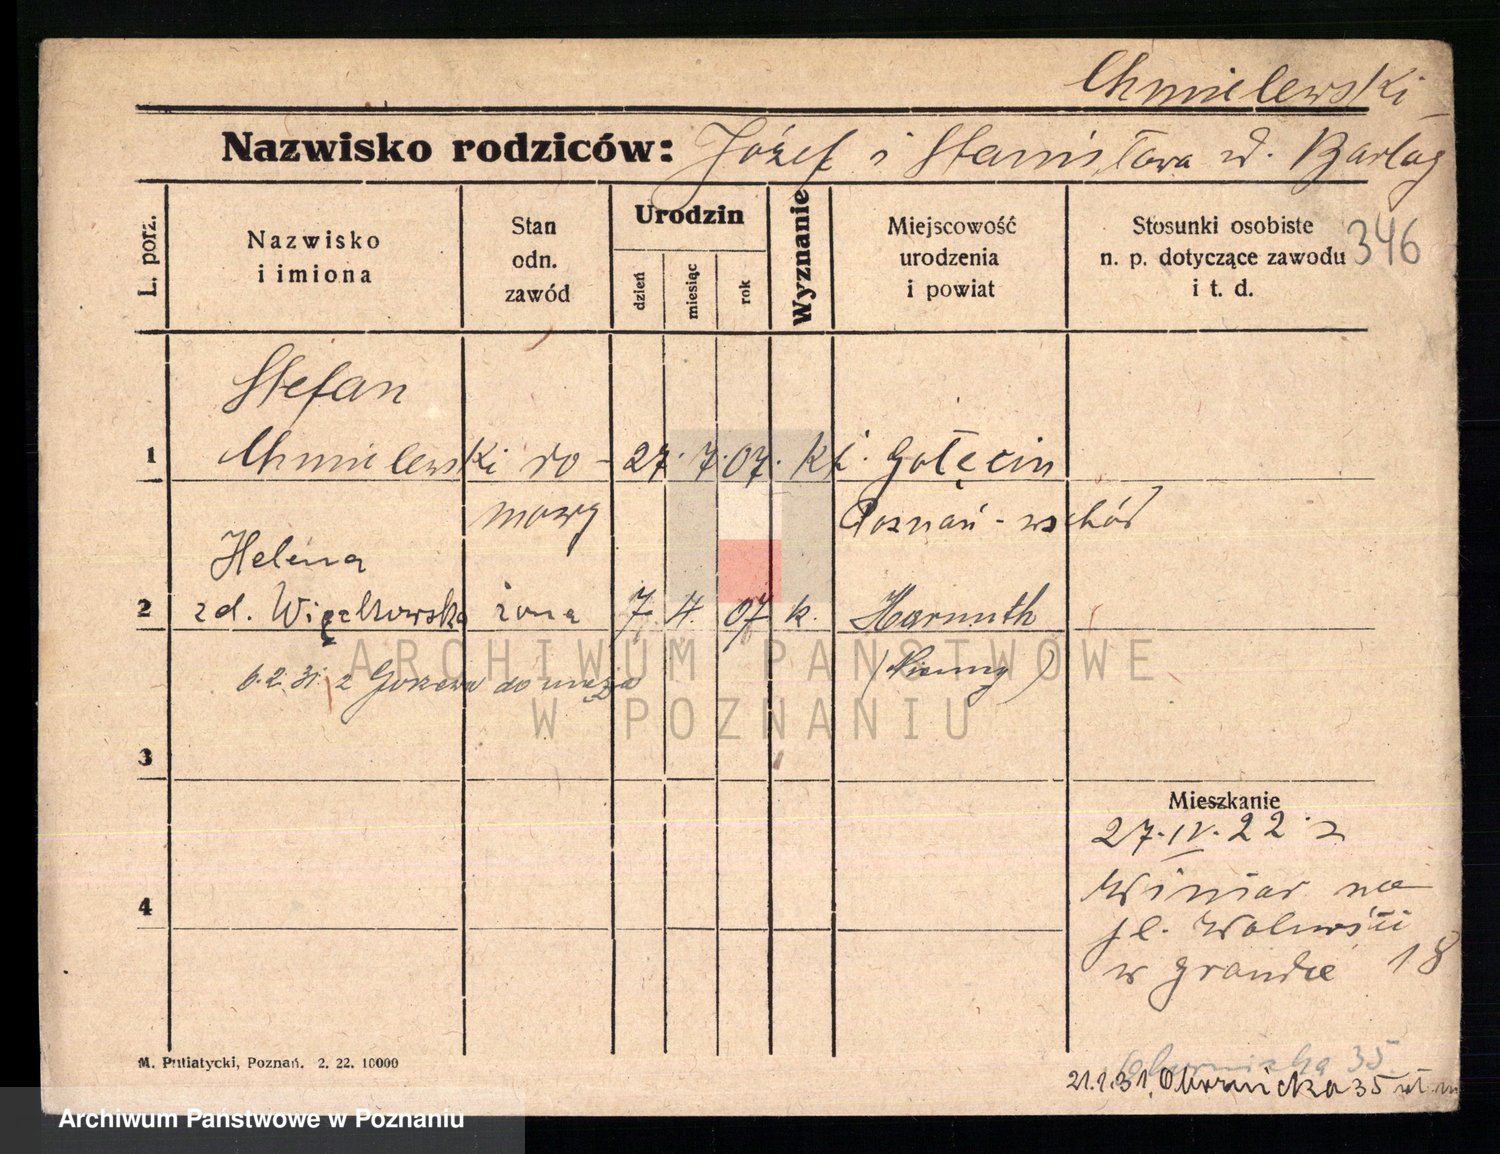 Chmielewski
Nazwisko rodziców: Józef i Stanisława z d. Bartag
L. porz.
Nazwisko
i imiona
Stan
odn.
zawód
Urodzin
dzień
miesiąc
rok
Wyznanie
Miejscowość
urodzenia
i powiat
Stosunki osobiste
n. p. dotyczące zawodu
i t. d.
346
Stefan
1 Chmielewski ro- 27. 7. 07. kt. Golęcin
Poznań - wschód
Helena
2 zd. Więckowska żona 7. 4. 07 k. Harmuth
(Niemcy)
6.2.31. z do męża
3
Mieszkanie
27. IV. 22. z
Winiar na
pl. Wolności
w 18
4
M. Putiatycki, Poznań. 2. 22. 10000
Obornicka 35.
21.1.31. Obornicka 35
ARCHIWUM PAŃSTWOWE
W POZNANIU
Archiwum Państwowe w Poznaniu